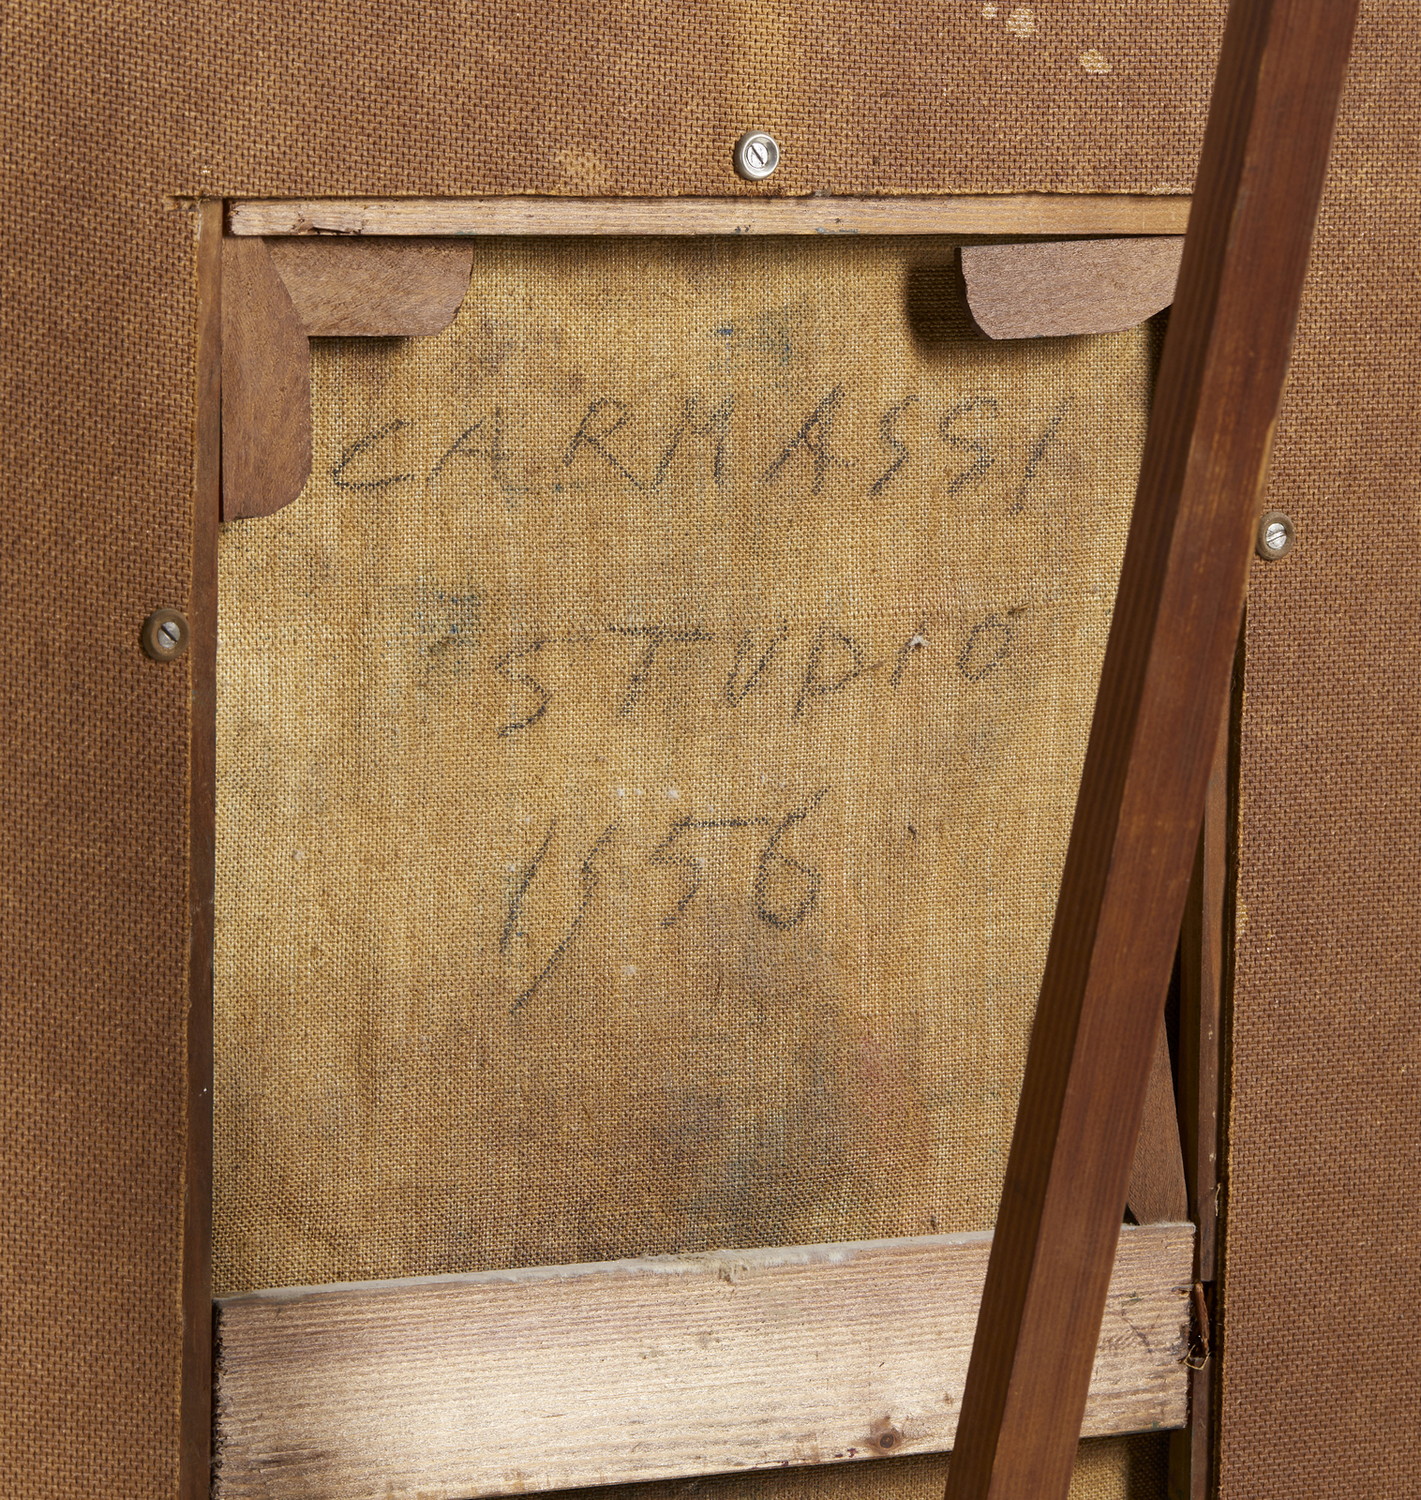 CARMASSI
ESTUDIO
1956